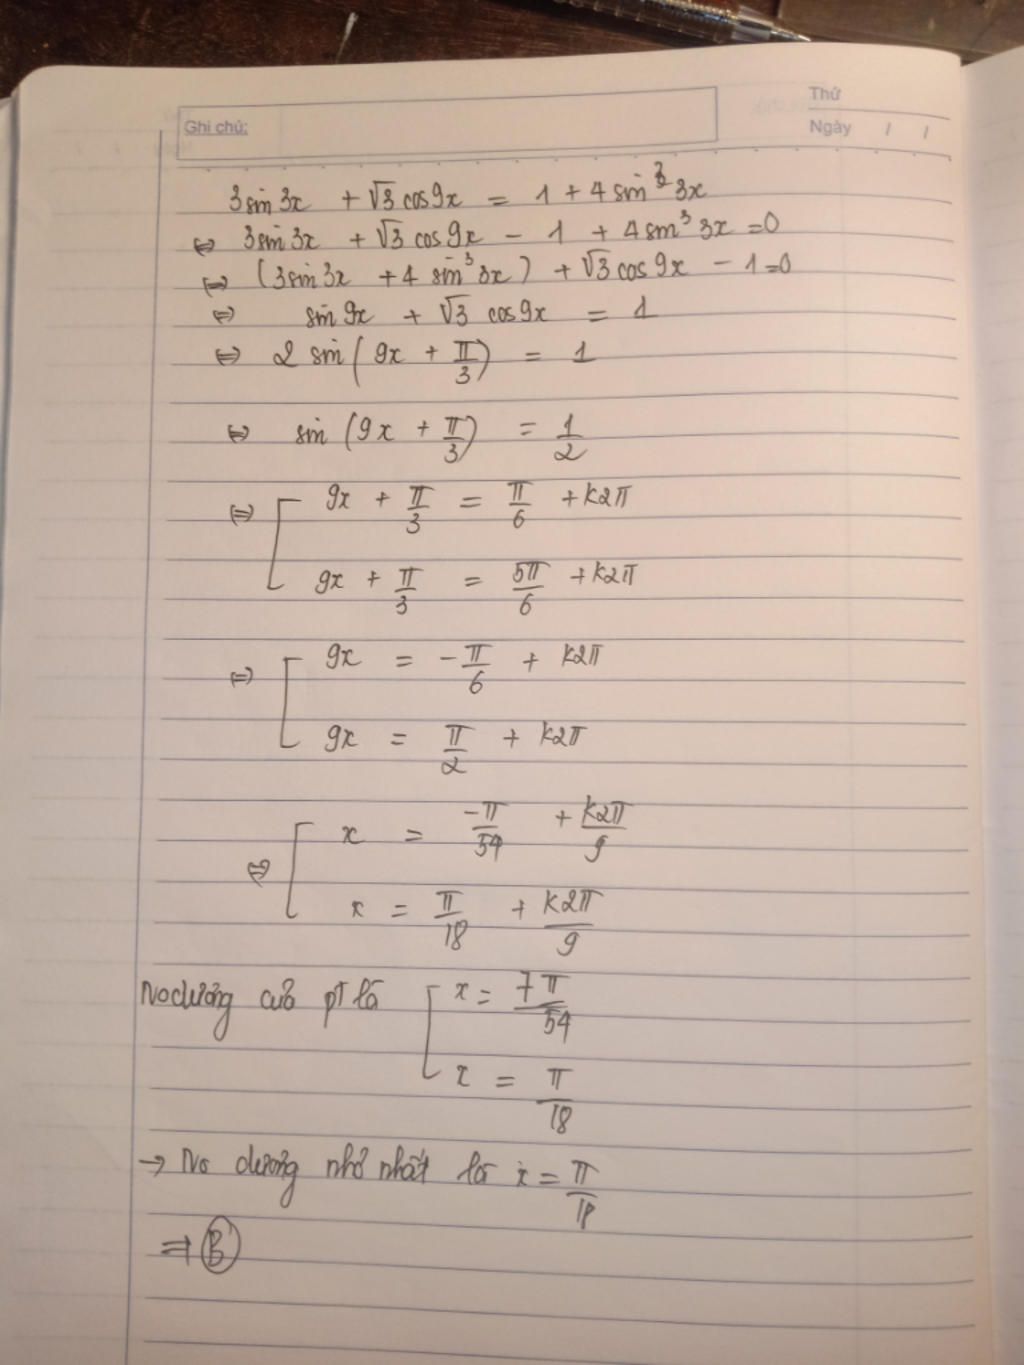 Thứ
Ghi chú:
Ngày / /
3sin3x + √3cos9x = 1 + 4sin³3x
⇔ 3sin3x + √3cos9x - 1 + 4sin³3x = 0
⇔ (3sin3x + 4sin³3x) + √3cos9x - 1 = 0
⇔ sin9x + √3 cos9x = 1
⇔ 2 sin(9x + π/3) = 1
⇔ sin(9x + π/3) = 1/2
⇔ [ 9x + π/3 = π/6 + k2π
9x + π/3 = 5π/6 + k2π
⇔ [ 9x = -π/6 + k2π
9x = π/2 + k2π
⇔ [ x = -π/54 + k2π/9
x = π/18 + k2π/9
No dương của pt là [ x = 7π/54
x = π/18
→ No dương nhỏ nhất là x = π/18
⇒ B